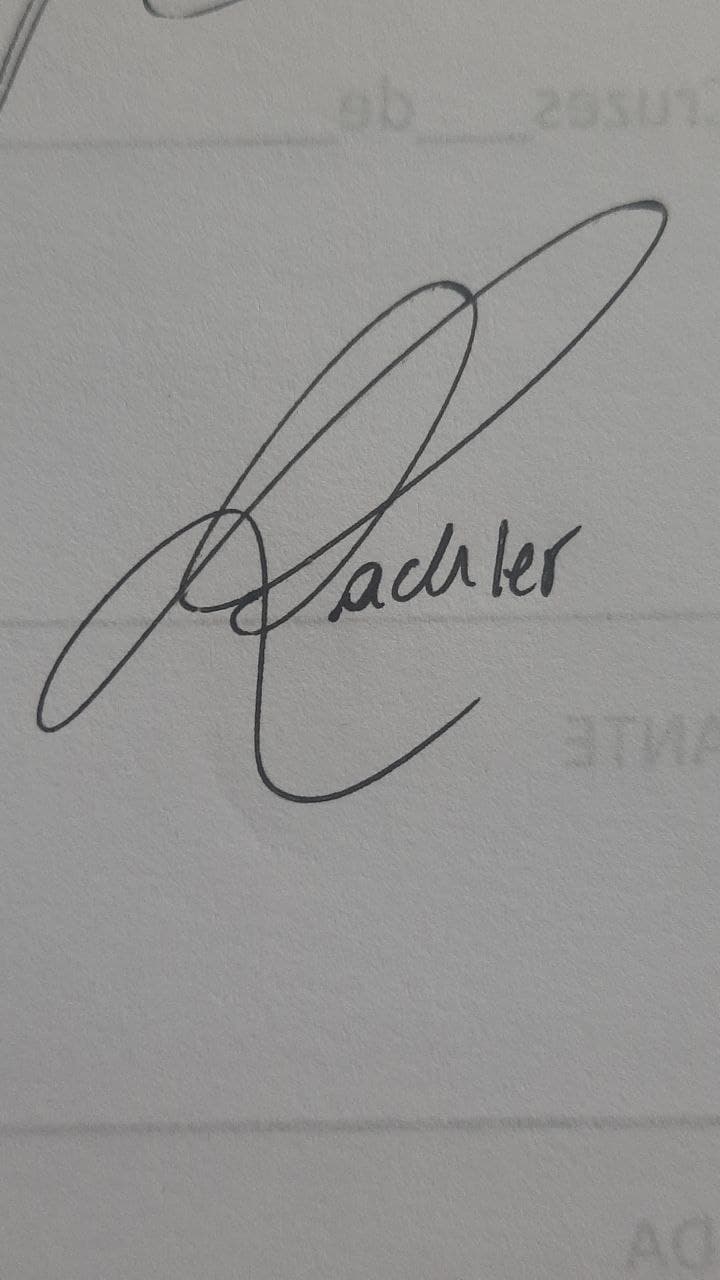 Cruzes ___de
Rachler
ANTE
DA